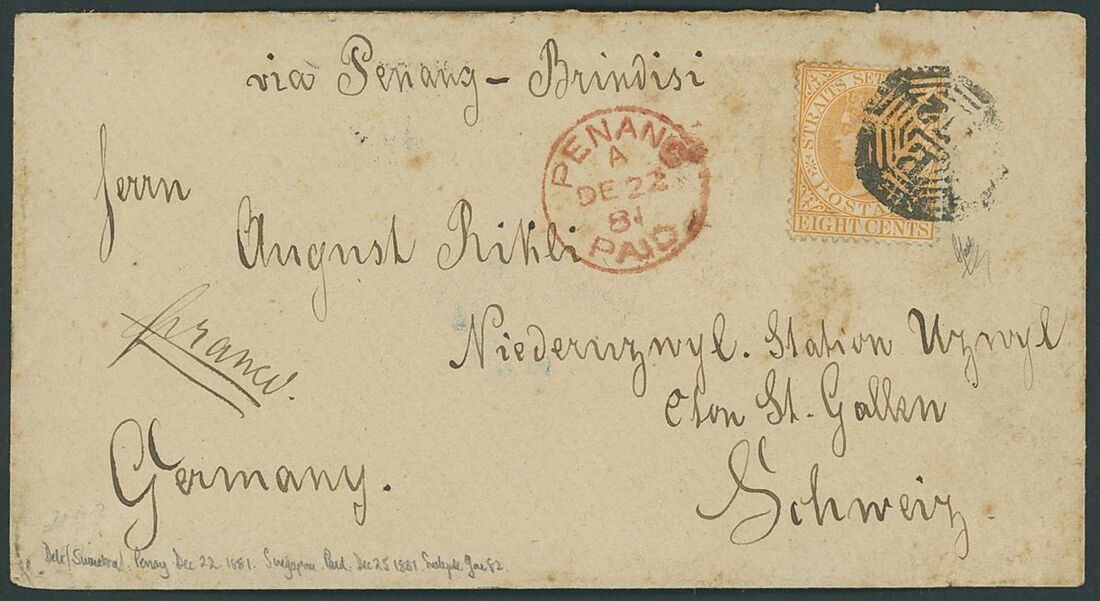 via Penang - Brindisi
STRAITS SETT
POSTA
EIGHT CENTS
PENANG
A
DE 22
81
PAID
Herrn
August Rikli
franco.
Niederuzwyl. Station Uzwyl
Cton St. Gallen
Germany.
Schweiz
Deli (Sumatra). Penang Dec 22 1881. Singapore Paid. Dec 25 1881